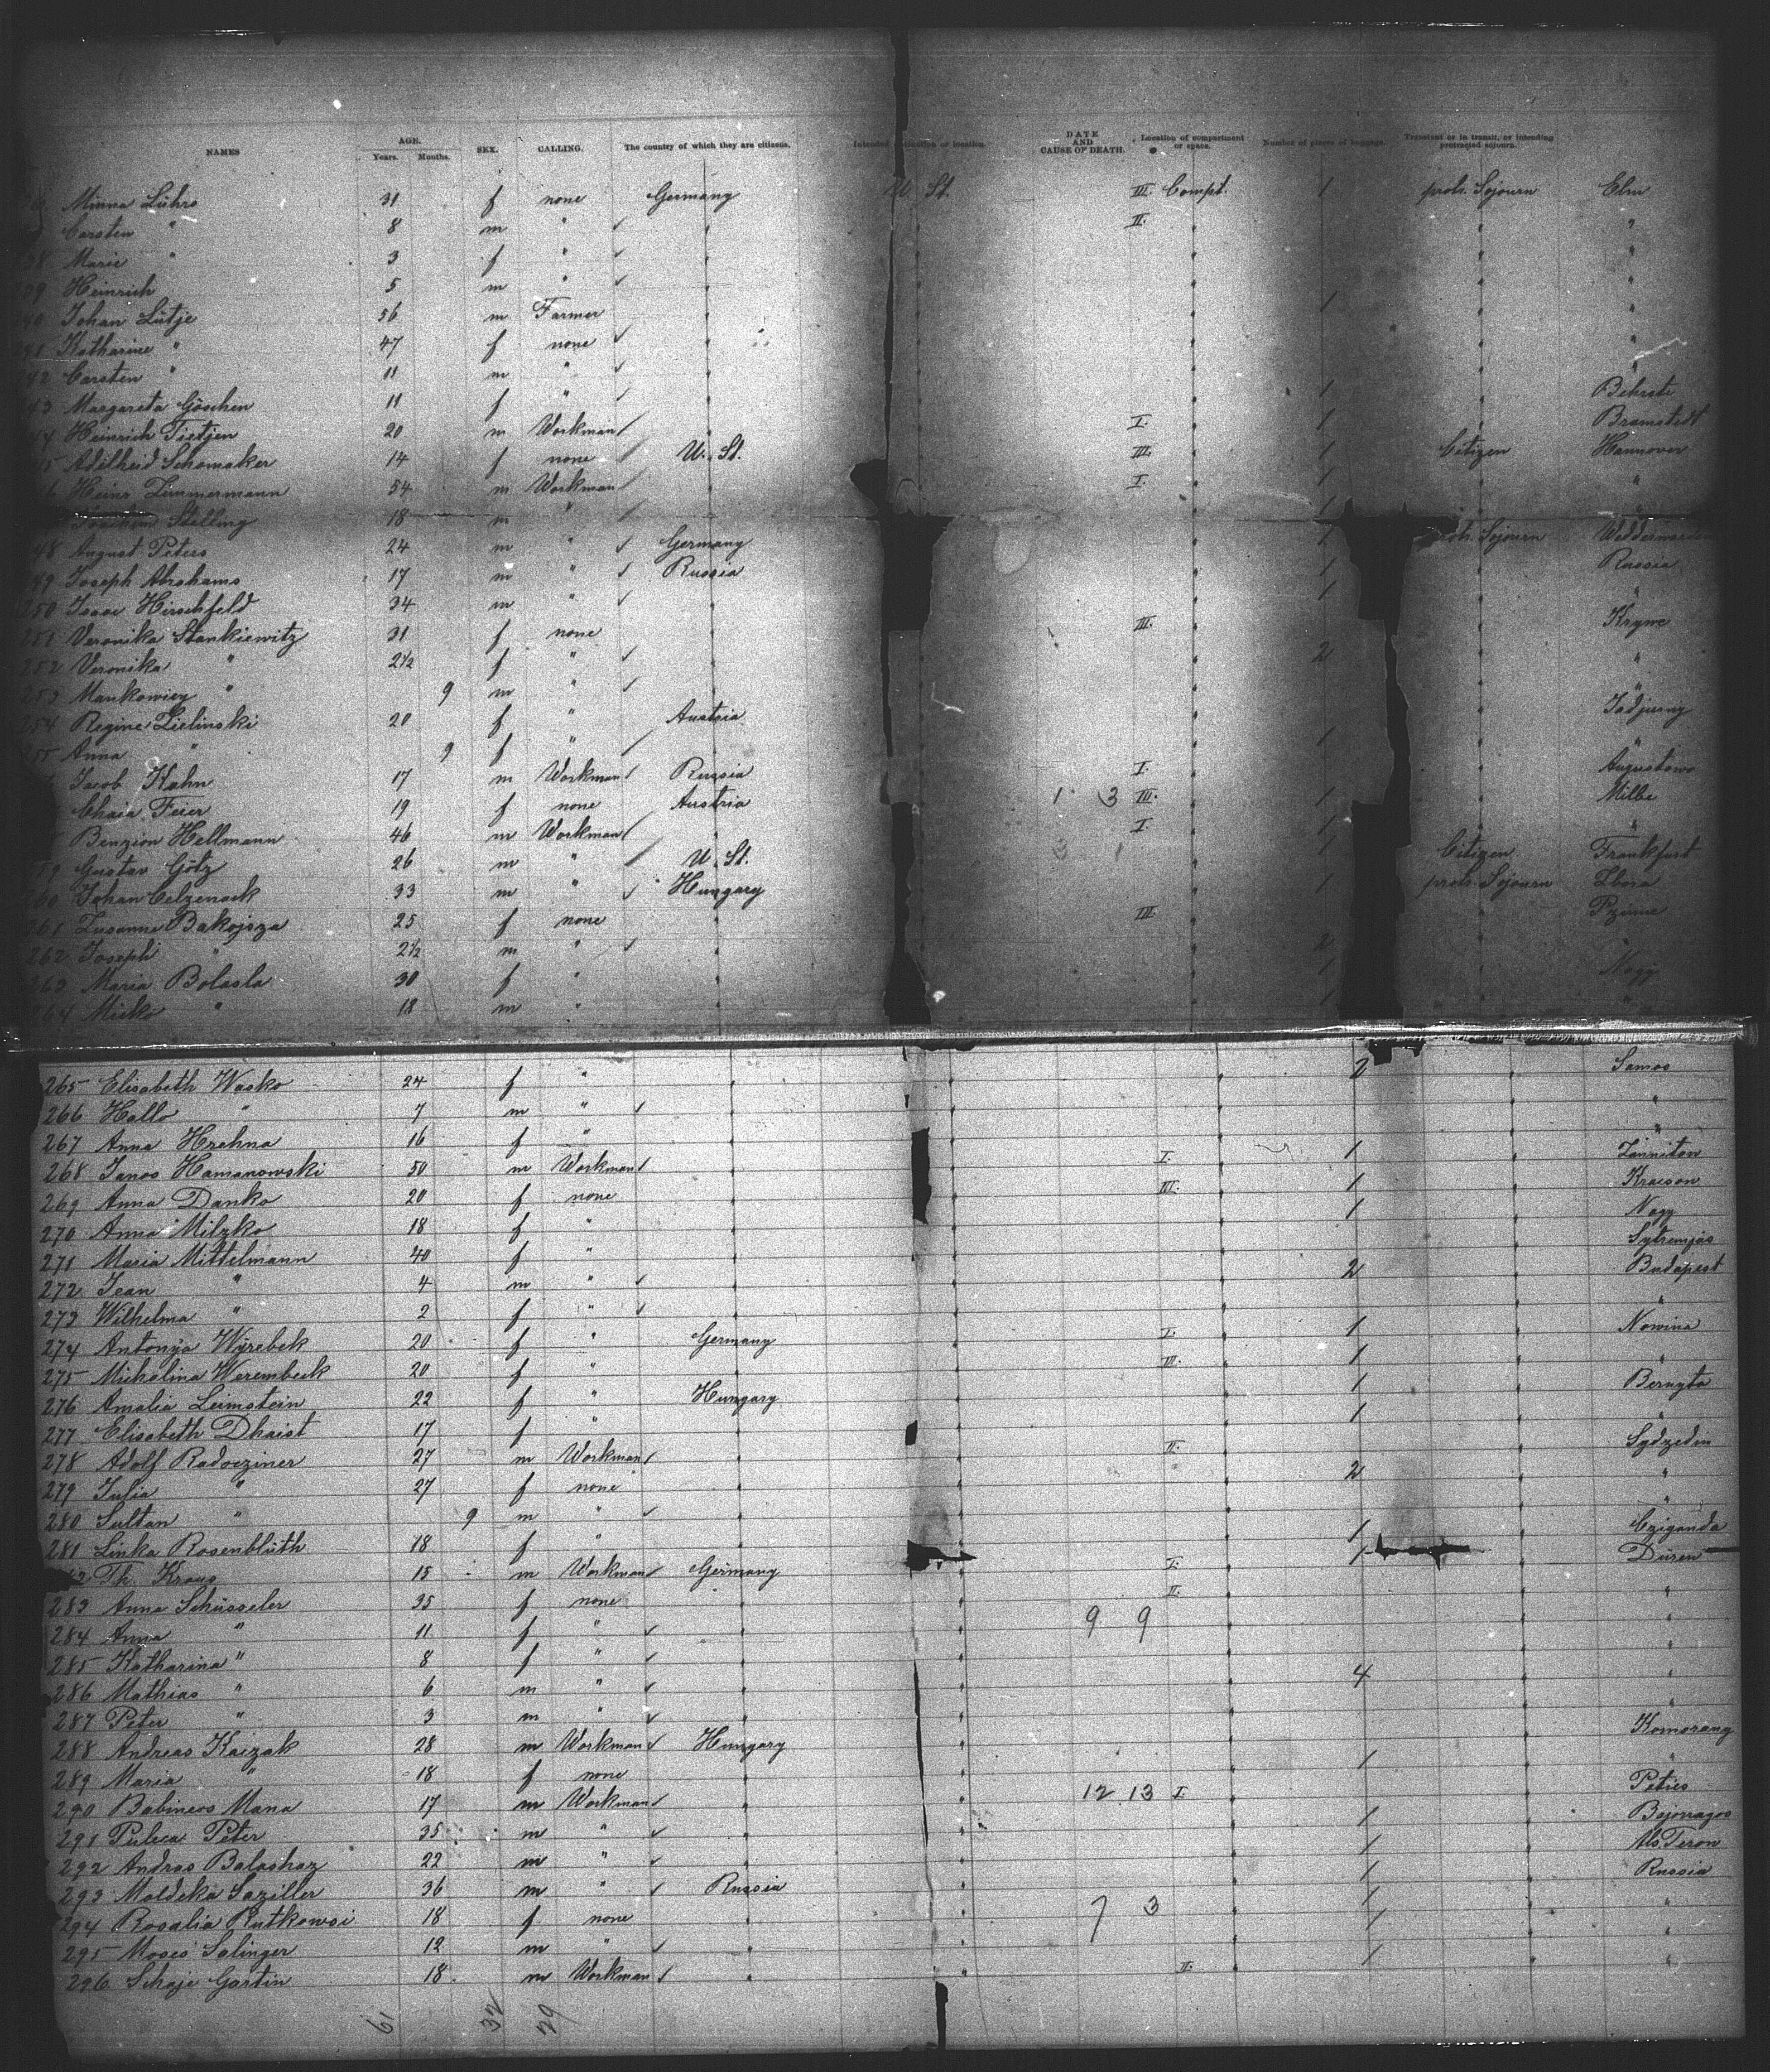 NAMES AGE. Years. Months. SEX. CALLING. The country of which they are citizens. Intended destination or location. DATE AND CAUSE OF DEATH. Location of compartment or space. Number of pieces of baggage. Transient or in transit, or intending protracted sojourn.
Minna Lührs 31 f none Germany U. St. III. Compt. 1 protr. Sojourn Elm
Carsten " 8 m " ✓ " II. "
38 Marie " 3 f " ✓ " "
39 Heinrich 5 m " ✓ " "
240 Johan Lütje 56 m Farmer " 1 "
241 Katharine " 47 f none ✓ " "
242 Carsten " 11 m " ✓ " "
43 Margareta Göschen 11 f " ✓ " 1 Behrste
44 Heinrich Tietjen 20 m Workman ✓ " I. 1 Bramstedt
45 Adelheid Schomaker 14 f none ✓ U. St. III. 1 Citizen Hannover
46 Heinr Zummermann 54 m Workman ✓ " I. 1 "
Stelling 18 m " ✓ " 1 "
48 August Peters 24 m " ✓ Germany 1 protr. Sojourn Weddewarden
49 Joseph Abrahams 17 m " ✓ Russia 1 Russia
250 Isaac Hirschfeld 34 m " ✓ " 1 "
251 Veronika Stankiewitz 31 f none " III. Krywe
252 Veronika " 2½ f " ✓ " 2 "
253 Mankowicz " 9 m " ✓ " "
254 Regine Zielinski 20 f " Austria Jadjurny
255 Anna " 9 f " ✓ " 1 "
Jacob Kahn 17 m Workman ✓ Russia I. 1 Augustowo
Chaia Feier 19 f none Austria 1 3 III. 1 Milbe
Benzion Hellmann 46 m Workman ✓ " I. 1 "
259 Gustav Götz 26 m " ✓ U. St. 3 1 1 Citizen Frankfurt
260 Johan Celzenack 33 m " ✓ Hungary 1 protr. Sojourn Zbora
261 Zusanna Bakojsza 25 f none " III. Pzüme
262 Joseph " 2½ m " ✓ " 2 "
263 Maria Bolasla 30 f " " 1 Nagy
264 Misko " 18 m " " 1 "
265 Elisabeth Wasko 24 f " " 2 Samos
266 Hallo " 7 m " ✓ " "
267 Anna Hrehna 16 f " " "
268 Janos Hamanowski 50 m Workman ✓ " I. 1 Zänniton
269 Anna Danko 20 f none " III. 1 Kraeson
270 Anna Milzko 18 f " " 1 Nagy
271 Maria Mittelmann 40 f " " Sytremjás
272 Jean " 4 m " ✓ " 2 Budapest
273 Wilhelma " 2 f " ✓ " "
274 Antonÿa Wÿrebek 20 f " Germany I. 1 Nowina
275 Michalina Werembeck 20 f " " III. 1 "
276 Amalia Leimstein 22 f " Hungary 1 Bernyta
277 Elisabeth Dhaist 17 f " " 1 "
278 Adolf Radocziner 27 m Workman ✓ " II. Sydzedin
279 Julia " 27 f none " 2 "
280 Sultan " 9 m " ✓ " "
281 Linka Rosenblüth 18 f " " 1 Cziganda
282 Th. Kraus 15 m Workman ✓ Germany I. 1 Düren
283 Anna Schüsseler 35 f none " II. "
284 Anna " 11 f " ✓ " 9 9 "
285 Katharina " 8 f " ✓ " "
286 Mathias " 6 m " ✓ " 4 "
287 Peter " 3 m " ✓ " "
288 Andreas Kaczak 28 m Workman ✓ Hungary Komorany
289 Maria " 18 f none " 1 "
290 Babineos Mana 17 m Workman ✓ " 12 13 I. Peties
291 Puleca Peter 35 m " ✓ " 1 Bajorragos
292 Andras Balashaz 22 m " ✓ " 1 Als Teron
293 Moldeka Saziller 36 m " ✓ Russia 1 Russia
294 Rosalia Rutkowsi 18 f none " 7 3 1 "
295 Moses Salinger 12 m " ✓ " 1 "
296 Schaje Gartin 18 m Workman ✓ " II. 1 "
61 32 29